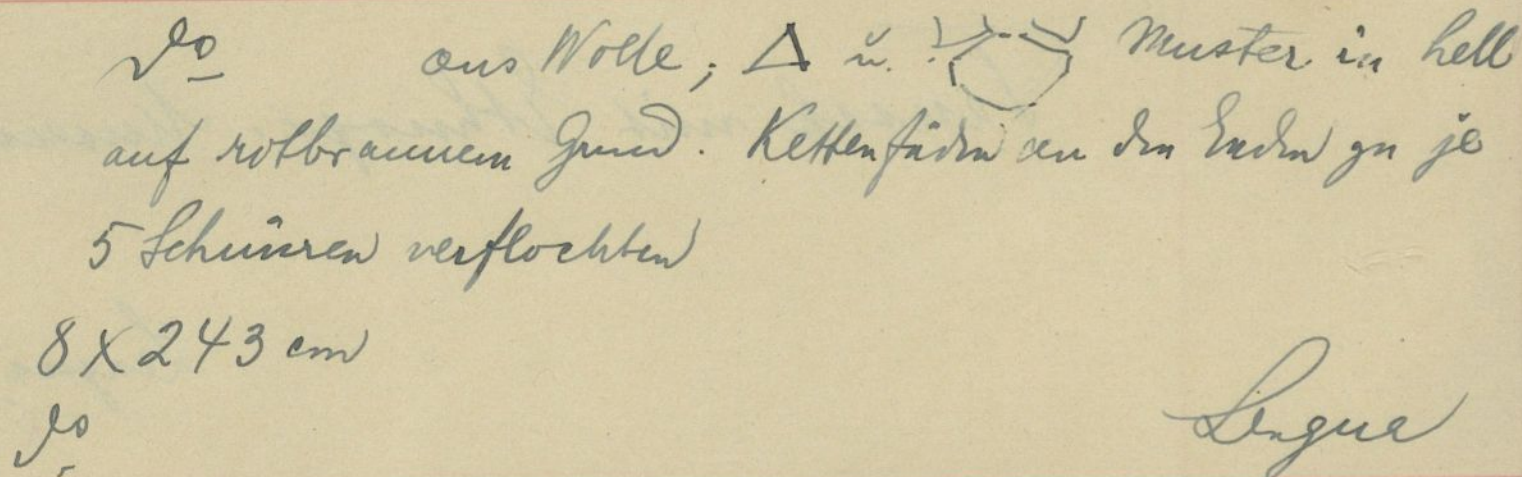 do aus Wolle; Δ u. Muster in hell
auf rotbraunem Grund. Kettenfäden an den Enden zu je
5 Schnüren verflochten
8 x 243 cm
do Lengua